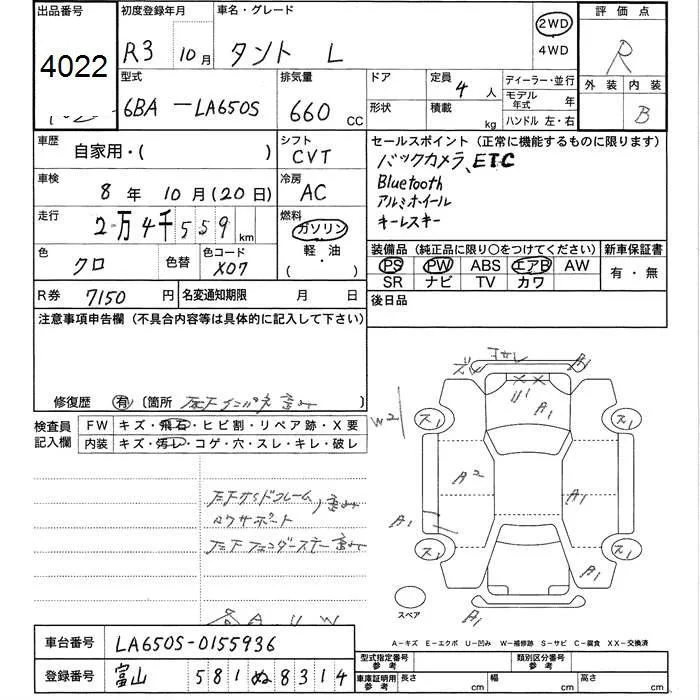 出品番号 初度登録年月 車名・グレード 評価点
4022 R3 10月 タント L 2WD 4WD R
型式 排気量 ドア 定員 4人 ディーラー・並行 外装 内装
6BA-LA650S 660 CC 形状 積載 kg モデル年式 年 ハンドル 左・右 B
車歴 自家用・( ) シフト CVT
セールスポイント (正常に機能するものに限ります)
バックカメラ、ETC
Bluetooth
アルミホイール
キーレスキー
車検 8年 10月(20日) 冷房 AC
走行 2万4千559km 燃料 ガソリン 軽・油 ( )
色 クロ 色替 色コード X07
装備品 (純正品に限り○をつけてください) 新車保証書
PS PW ABS エアB AW 有・無
SR ナビ TV カワ
R券 7150円 名変通知期限 月 日
後日品
注意事項申告欄 (不具合内容等は具体的に記入して下さい)
修復歴 有 〔箇所
検査員記入欄 FW キズ・飛石・ヒビ割・リペア跡・X要
内装 キズ・汚レ・コゲ・穴・スレ・キレ・破レ
A1
U1
A1
W2
A2
A1
A1
A1
A1
スペア
A-キズ E-エクボ U-凹み W-補修跡 S-サビ C-腐食 XX-交換済
車台番号 LA650S-0155936
登録番号 富山 581ぬ8314
型式指定番号 参考 類別区分番号 参考
車庫証明用 参考 長さ cm 幅 cm 高さ cm